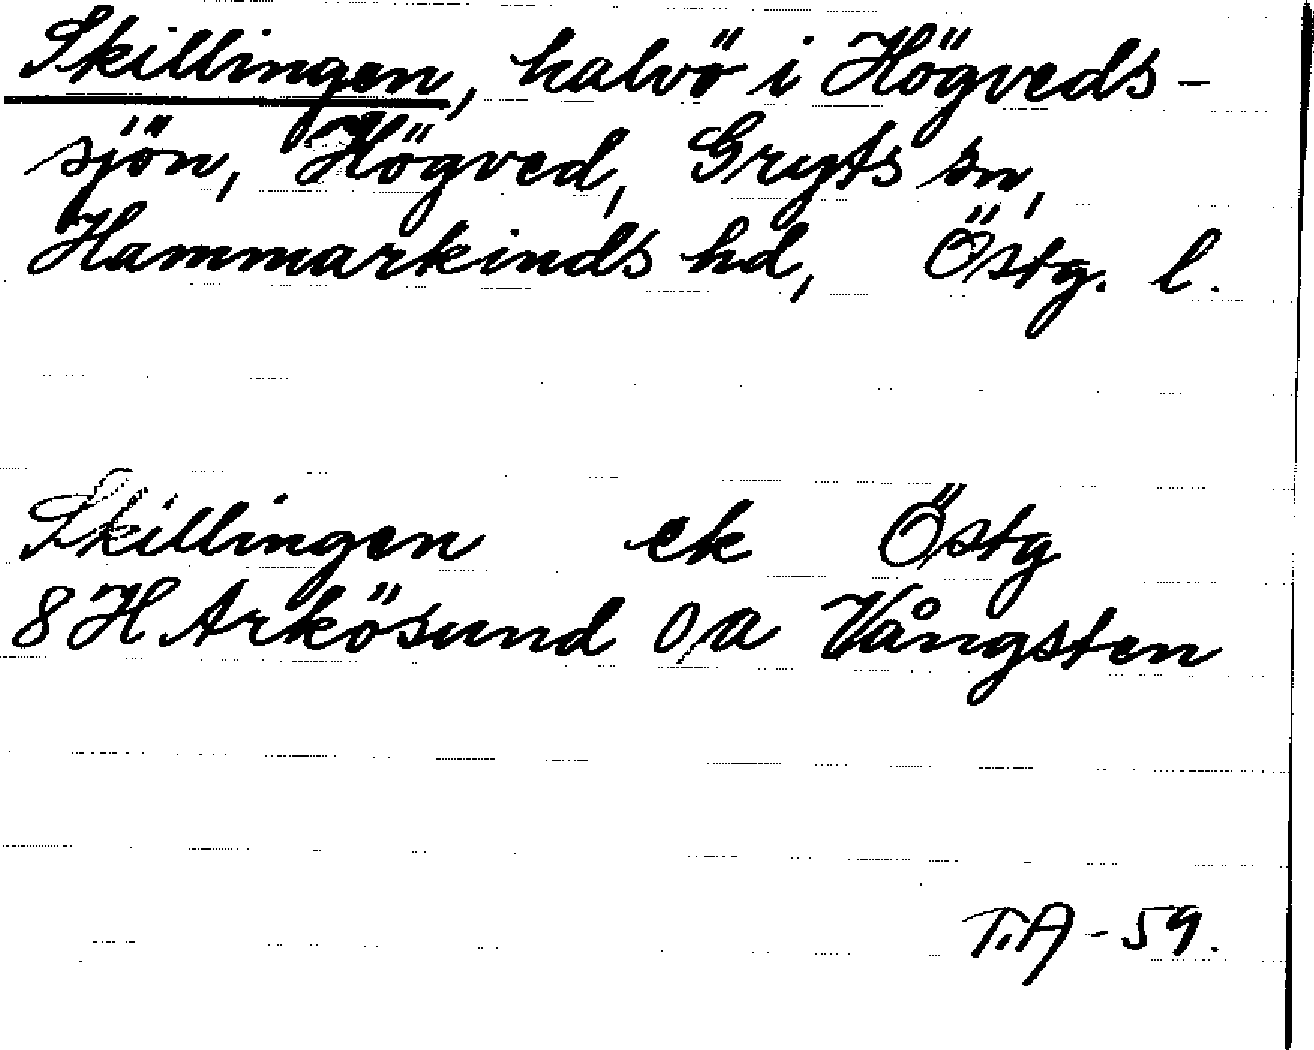 Skillingen, halvö i Högveds-
sjön, Högved, Gryts sn,
Hammarkinds hd, Östg. l.
Skillingen ek Östg
8H Arkösund 0,a Vångsten
T.A-59.